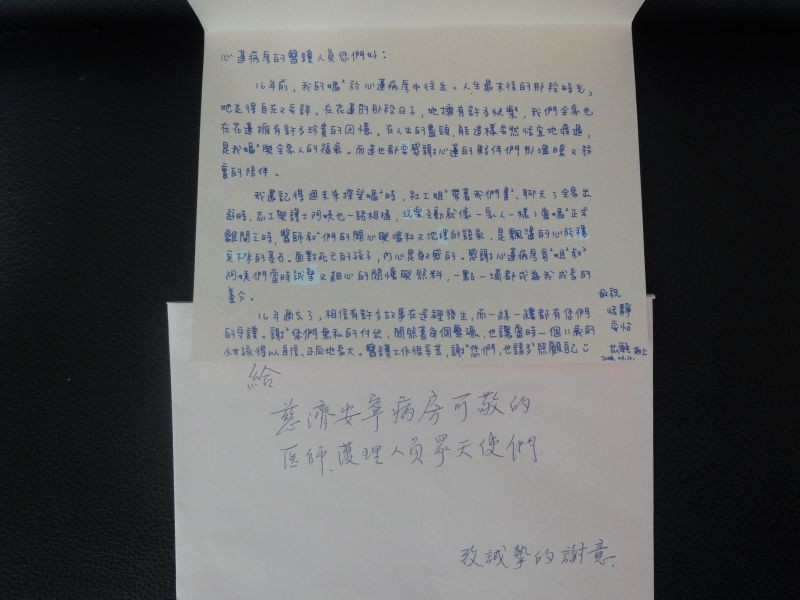 心蓮病房的醫護人員您們好：
16年前，我的媽ˇ於心蓮病房中往生。人生最末後的那段時光，
她走得自在又安詳。在花蓮的那段日子，她擁有許多快樂，我們全家也
在花蓮擁有許多珍貴的回憶。在人生的盡頭，能這樣安然恬適地
是我媽ˇ與全家人的福氣。而這也都要感謝心蓮的夥伴們那溫暖又務
實的陪伴。
我還記得週末來探望媽ˇ時，社工姐ˇ帶著我們畫ˇ、聊天；全家出
遊時，志工與護士阿姨也一路相隨，玩樂互動般像一家人一樣；當媽ˇ正式
離開之時，醫師和ˇ們的關心與溫和又沈穩的語氣，是飄盪的心能穩
的基石。面對死亡的孩子，內心是敏感的。感謝心蓮病房有ˇ姐ˇ和ˇ
阿姨們當時誠摯又細心的關懷與照料，一點一滴都成為我成長的
養分。
16年過去了，相信有許多故事在這裡發生，而一絲一縷都有您們
的守護。謝ˇ您們無私的付出，關照著每個靈魂，也讓當時一個11歲的
小女孩得以自信、正向地長大。醫護工作很辛苦，謝ˇ您們，也請多ˇ照顧自己
敬祝
恬靜
安怡
敬上
給
慈濟安寧病房可敬的
医師、護理人員眾天使們
致誠摯的謝意.